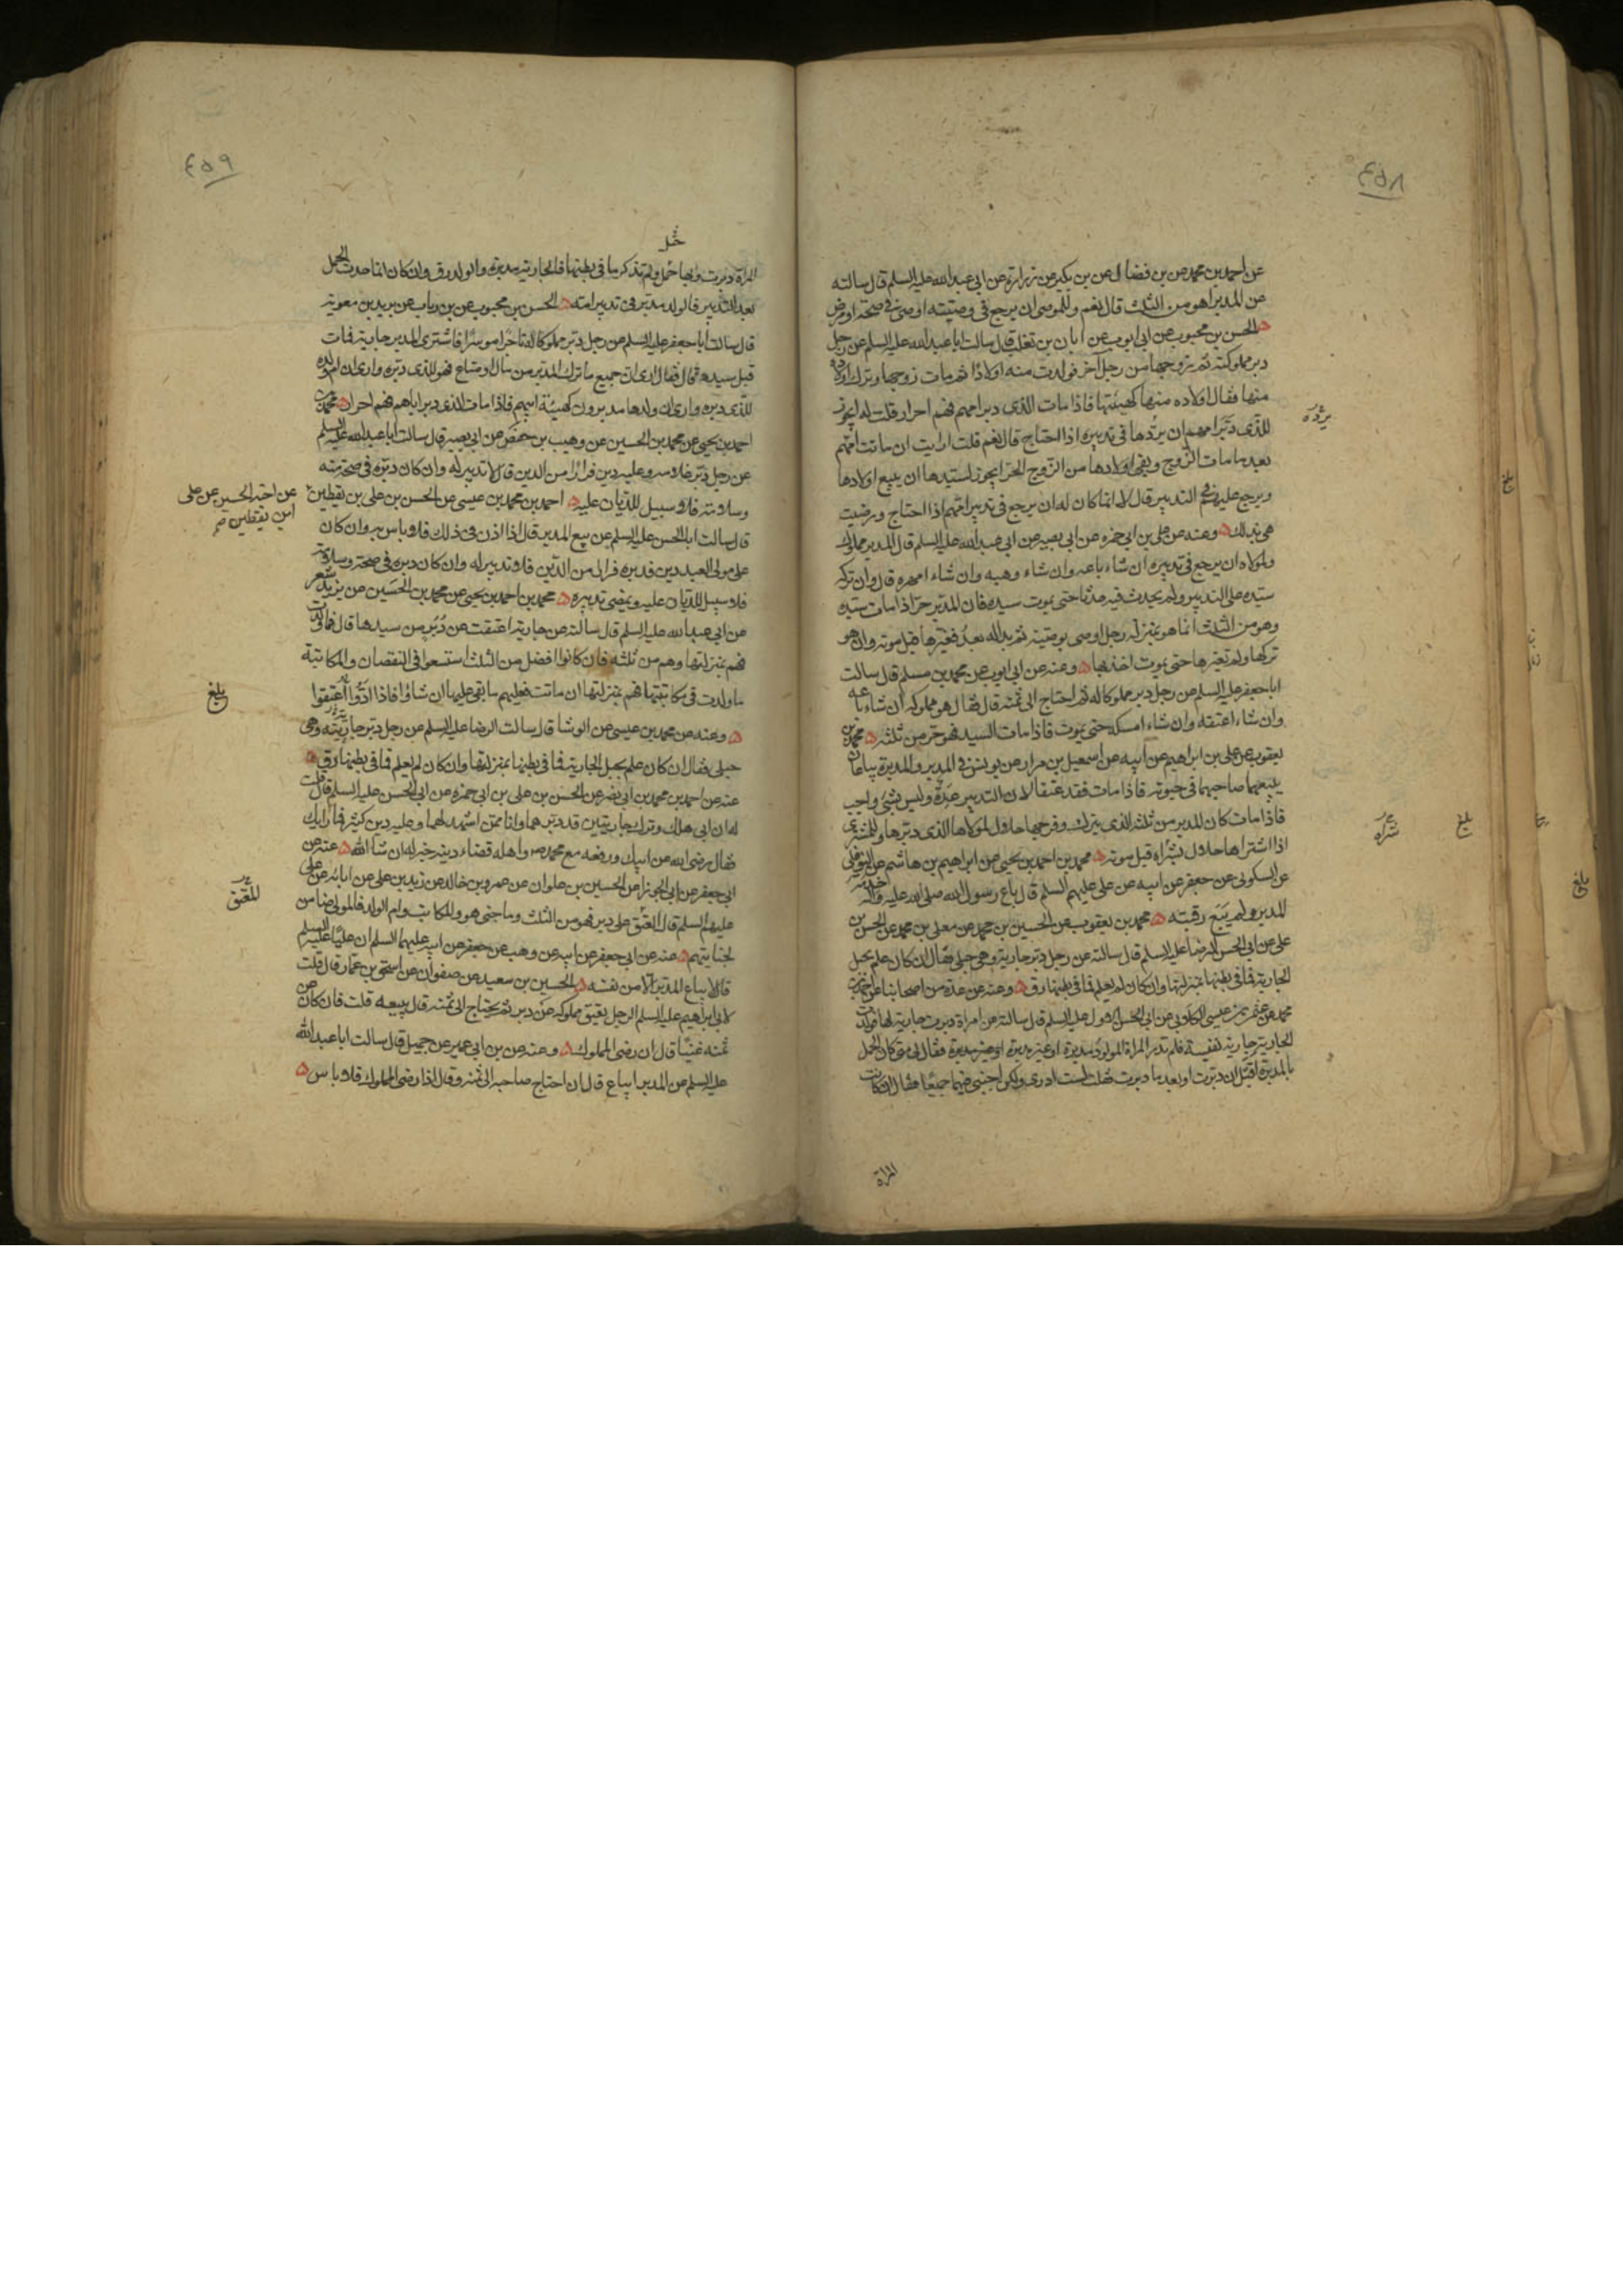 ۴۵۸
عن احمد بن محمد عن بن فضال عن بن بكير عن زرارة عن ابى عبدالله عليه السلم قال سالته
عن المدبر اهو من الثلث قال نعم وللموصى ان يرجع فى وصيته اوصى فى صحة او مرض
الحسن بن محبوب عن ابى ايوب عن ابان بن تغلب قال سالت ابا عبدالله عليه السلم عن رجل
دبر مملوكته ثم زوجها من رجل آخر فولدت منه اولادًا ثم مات زوجها وترك اولاده
منها فقال اولاده منها كهيئتها فاذا مات الذى دبر امهم فهم احرار قلت له ايجوز
للذى دَبّر امهم ان يردّها فى تدبيره اذا احتاج قال نعم قلت ارايت ان ماتت امّهم
بعد ما مات الزّوج وبقى اولادها من الزّوج الحرّ ايجوز لسيّدها ان يبيع اولادها
ويرجع عليهم فى التدبير قال لا انما كان له ان يرجع فى تدبير امّهم اذا احتاج ورضيت
هى بذلك وعنه عن على بن ابى حمزه عن ابى بصير عن ابى عبدالله عليه السلم قال المدبر مملوك
ولمولاه ان يرجع فى تدبيره ان شاء باعه وان شاء وهبه وان شاء امهره قال وان تركه
سيّده على التدبير ولم يحدث فيه حدثا حتى يموت سيده فان المدبّر حرّ اذا مات سيّده
وهو من الثلث انما هو بمنزلة رجل اوصى بوصية ثم بدا له بعدُ فغيّرها قبل موته وان هو
تركها ولم يغيّرها حتى يموت اخذ بها وعنه عن ابى ايوب عن محمد بن مسلم قال سالت
ابا جعفر عليه السلم عن رجل دبر مملوكا له ثم احتاج الى ثمنه قال فقال هو مملوكه ان شاء باعه
وان شاء اعتقه وان شاء امسكه حتى يموت فاذا مات السيد فهو حرّ من ثلثه محمد بن
يعقوب عن على بن ابراهيم عن ابيه عن اسمعيل بن مرار عن يونس فى المدبر والمدبرة يباعان
يبيعهما صاحبهما فى حيوته فاذا مات فقد عتقا لان التدبير عِدَة وليس بشئ واجب
فاذا مات كان المدبر من ثلثه الذى يترك وفرجها حلال لمولاها الذى دبّرها وللمشترى
اذا اشتراها حلال بشراه قبل موته محمد بن احمد بن يحيى عن ابراهيم بن هاشم عن النوفلى
عن السكونى عن جعفر عن ابيه عن على عليهم السلم قال باع رسول الله صلى الله عليه وآله خدمة
المدبر ولم يَبَع رقبته محمد بن يعقوب عن الحسين بن محمد عن معلى بن محمد عن الحسن بن
على عن ابى الحسن الرضا عليه السلم قال سالته عن رجل دبّر جارية وهى حبلى فقال ان كان علم بحبل
الجارية فما فى بطنها بمنزلتها وان كان لم يعلم فما فى بطنها رق وعنه عن عدة من اصحابنا عن احمد بن
محمد عن عثمن بن عيسى الكلابى عن ابى الحسن الاول عليه السلم قال سالته عن امراة دبرت جارية لها فولدت
الجارية جارية نفيسة فلم تدر المراة المولودة مدبرة او غير مدبرة فقال لى متى كان الحمل
بالمدبرة أقبل ان دبّرت او بعد ما دبرت فقلت لست ادرى ولكن اجبنى فيهما جميعًا فقال ان كانت
المراة
يردّه
شراه
بلغ
بلغ
بلغ
۴۵۹
المراة دبرت وبها حَمل ولم تذكر ما فى بطنها فالجارية مدبرة والولد رق وان كان انما حدث الحمل
بعد التّدبير فالولد مدبّر فى تدبير امّه الحسن بن محبوب عن بن رياب عن بريد بن معوية
قال سالت ابا جعفر عليه السلم عن رجل دبّر مملوكا له تاجرًا موسرًا فاشترى المدبر جارية فمات
قبل سيده قال فقال ارى ان جميع ما ترك المدبّر من مال او متاع فهو للذى دبّره وارى ان ام ولده
للّذى دبره وارى ان ولدها مدبرون كهيئة ابيهم فاذا مات الذى دبر اباهم فهم احرار محمد بن
احمد بن يحيى عن محمد بن الحسين عن وهيب بن حفص عن ابى بصير قال سالت ابا عبدالله عليه السلم
عن رجل دبّر غلامه وعليه دين فرارًا من الدين قال لا تدبير له وان كان دبّره فى صحة منه
وسلامة فلا سبيل للدّيّان عليه احمد بن محمد بن عيسى عن الحسن بن على بن يقطين
عن اخيه الحسين عن على
ابن يقطين صح
قال سالت ابا الحسن عليه السلم عن بيع المدبر قال اذا اذن فى ذلك فلا باس به وان كان
على مولى العبد دين فدبره فرارا من الدّين فلا تدبير له وان كان دبره فى صحة وسلامة
فلا سبيل للدّيّان عليه ويمضى تدبيره محمد بن احمد بن يحيى عن محمد بن الحُسَين عن يزيد شعر
عن ابى عبدالله عليه السلم قال سالته عن جارية اعتقت عن دُبُرٍ من سيدها قال فما ولدت
فهم بمنزلتها وهم من ثلثه فان كانوا افضل من الثلث استسعوا فى النقصان والمكاتبة
ما ولدت فى مكاتبتها فهم بمنزلتها ان ماتت فعليهم ما بقى عليها ان شاؤا فاذا ادّوا اُعتِقوا
بلغ
وعنه عن محمد بن عيسى عن الوشا قال سالت الرضا عليه السلم عن رجل دبّر جاريته وهى
حبلى فقال ان كان علم بحبل الجارية فما فى بطنها بمنزلتها وان كان لم يعلم فما فى بطنها رق
عنه عن احمد بن محمد بن ابى نصر عن الحسن بن على بن ابى حمزه عن ابى الحسن عليه السلم قال قلت
له ان ابى هلك وترك جاريتين قد دبّرهما وانا ممّن اشهد لهما وعليه دين كثير فما رايك
فقال رضى الله عن ابيك ورفعه مع محمد ص واهله قضاء دينه خير له ان شا الله عنه عن
ابى جعفر عن ابى الجوزا عن الحسين بن علوان عن عمرو بن خالد عن زيد بن على عن ابائه عن على
عليهم السلم قال المُعتق على دبر فهو من الثلث وما جنى هو والمكاتب وام الولد فالمولى ضامن
المُعتَق
لجنايتهم عنه عن ابى جعفر عن ابيه عن وهب عن جعفر عن ابيه عليهما السلم ان عليًّا عليه السلم
قال لا يباع المدبّر الا من نفسه الحسين بن سعيد عن صفوان عن اسحق بن عمار قال قلت
لابى ابراهيم عليه السلم الرجل يعتق مملوكه عن دبر ثم يحتاج الى ثمنه قال يبيعه قلت فان كان عن
ثمنه غنيًّا قال ان رضى المملوك وعنه عن بن ابى عمير عن جميل قال سالت ابا عبدالله
عليه السلم عن المدبر ايباع قال ان احتاج صاحبه الى ثمنه وقال اذا رضى المملوك فلا باس